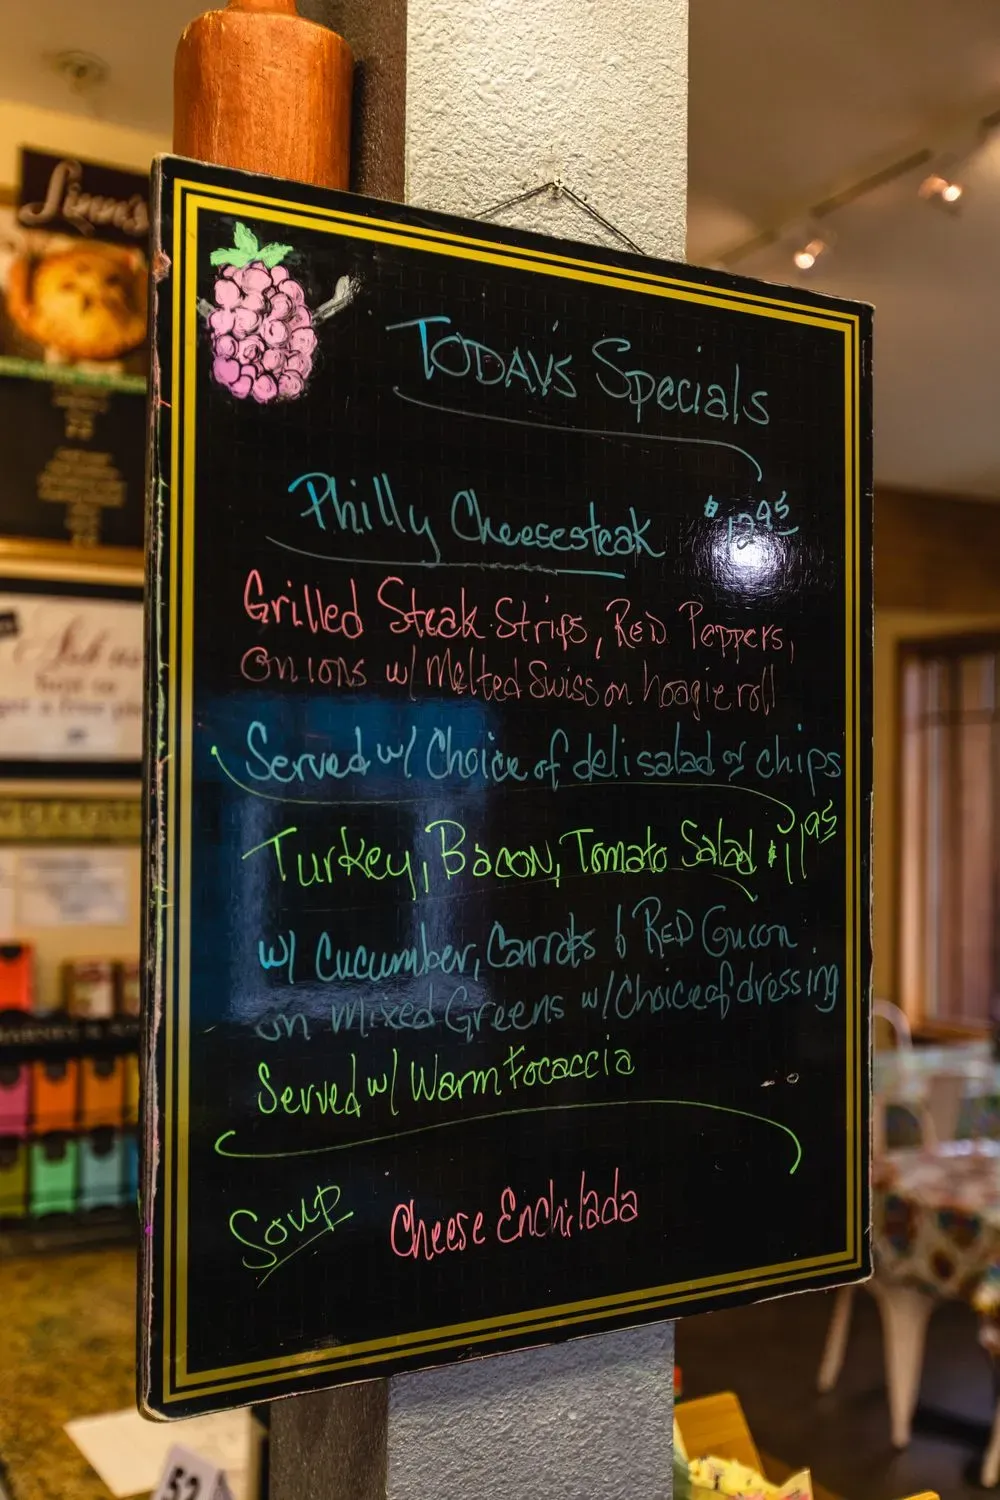 Linn's
TODAY'S Specials
Philly Cheesesteak $12.95
Grilled Steak Strips, RED Peppers,
Onions w/ Melted Swiss on hoagie roll
Served w/ Choice of deli salad or chips
Turkey, Bacon, Tomato Salad $11.95
w/ Cucumber, Carrots & RED Onion
on Mixed Greens w/ Choice of dressing
Served w/ Warm Focaccia
Soup Cheese Enchilada
52